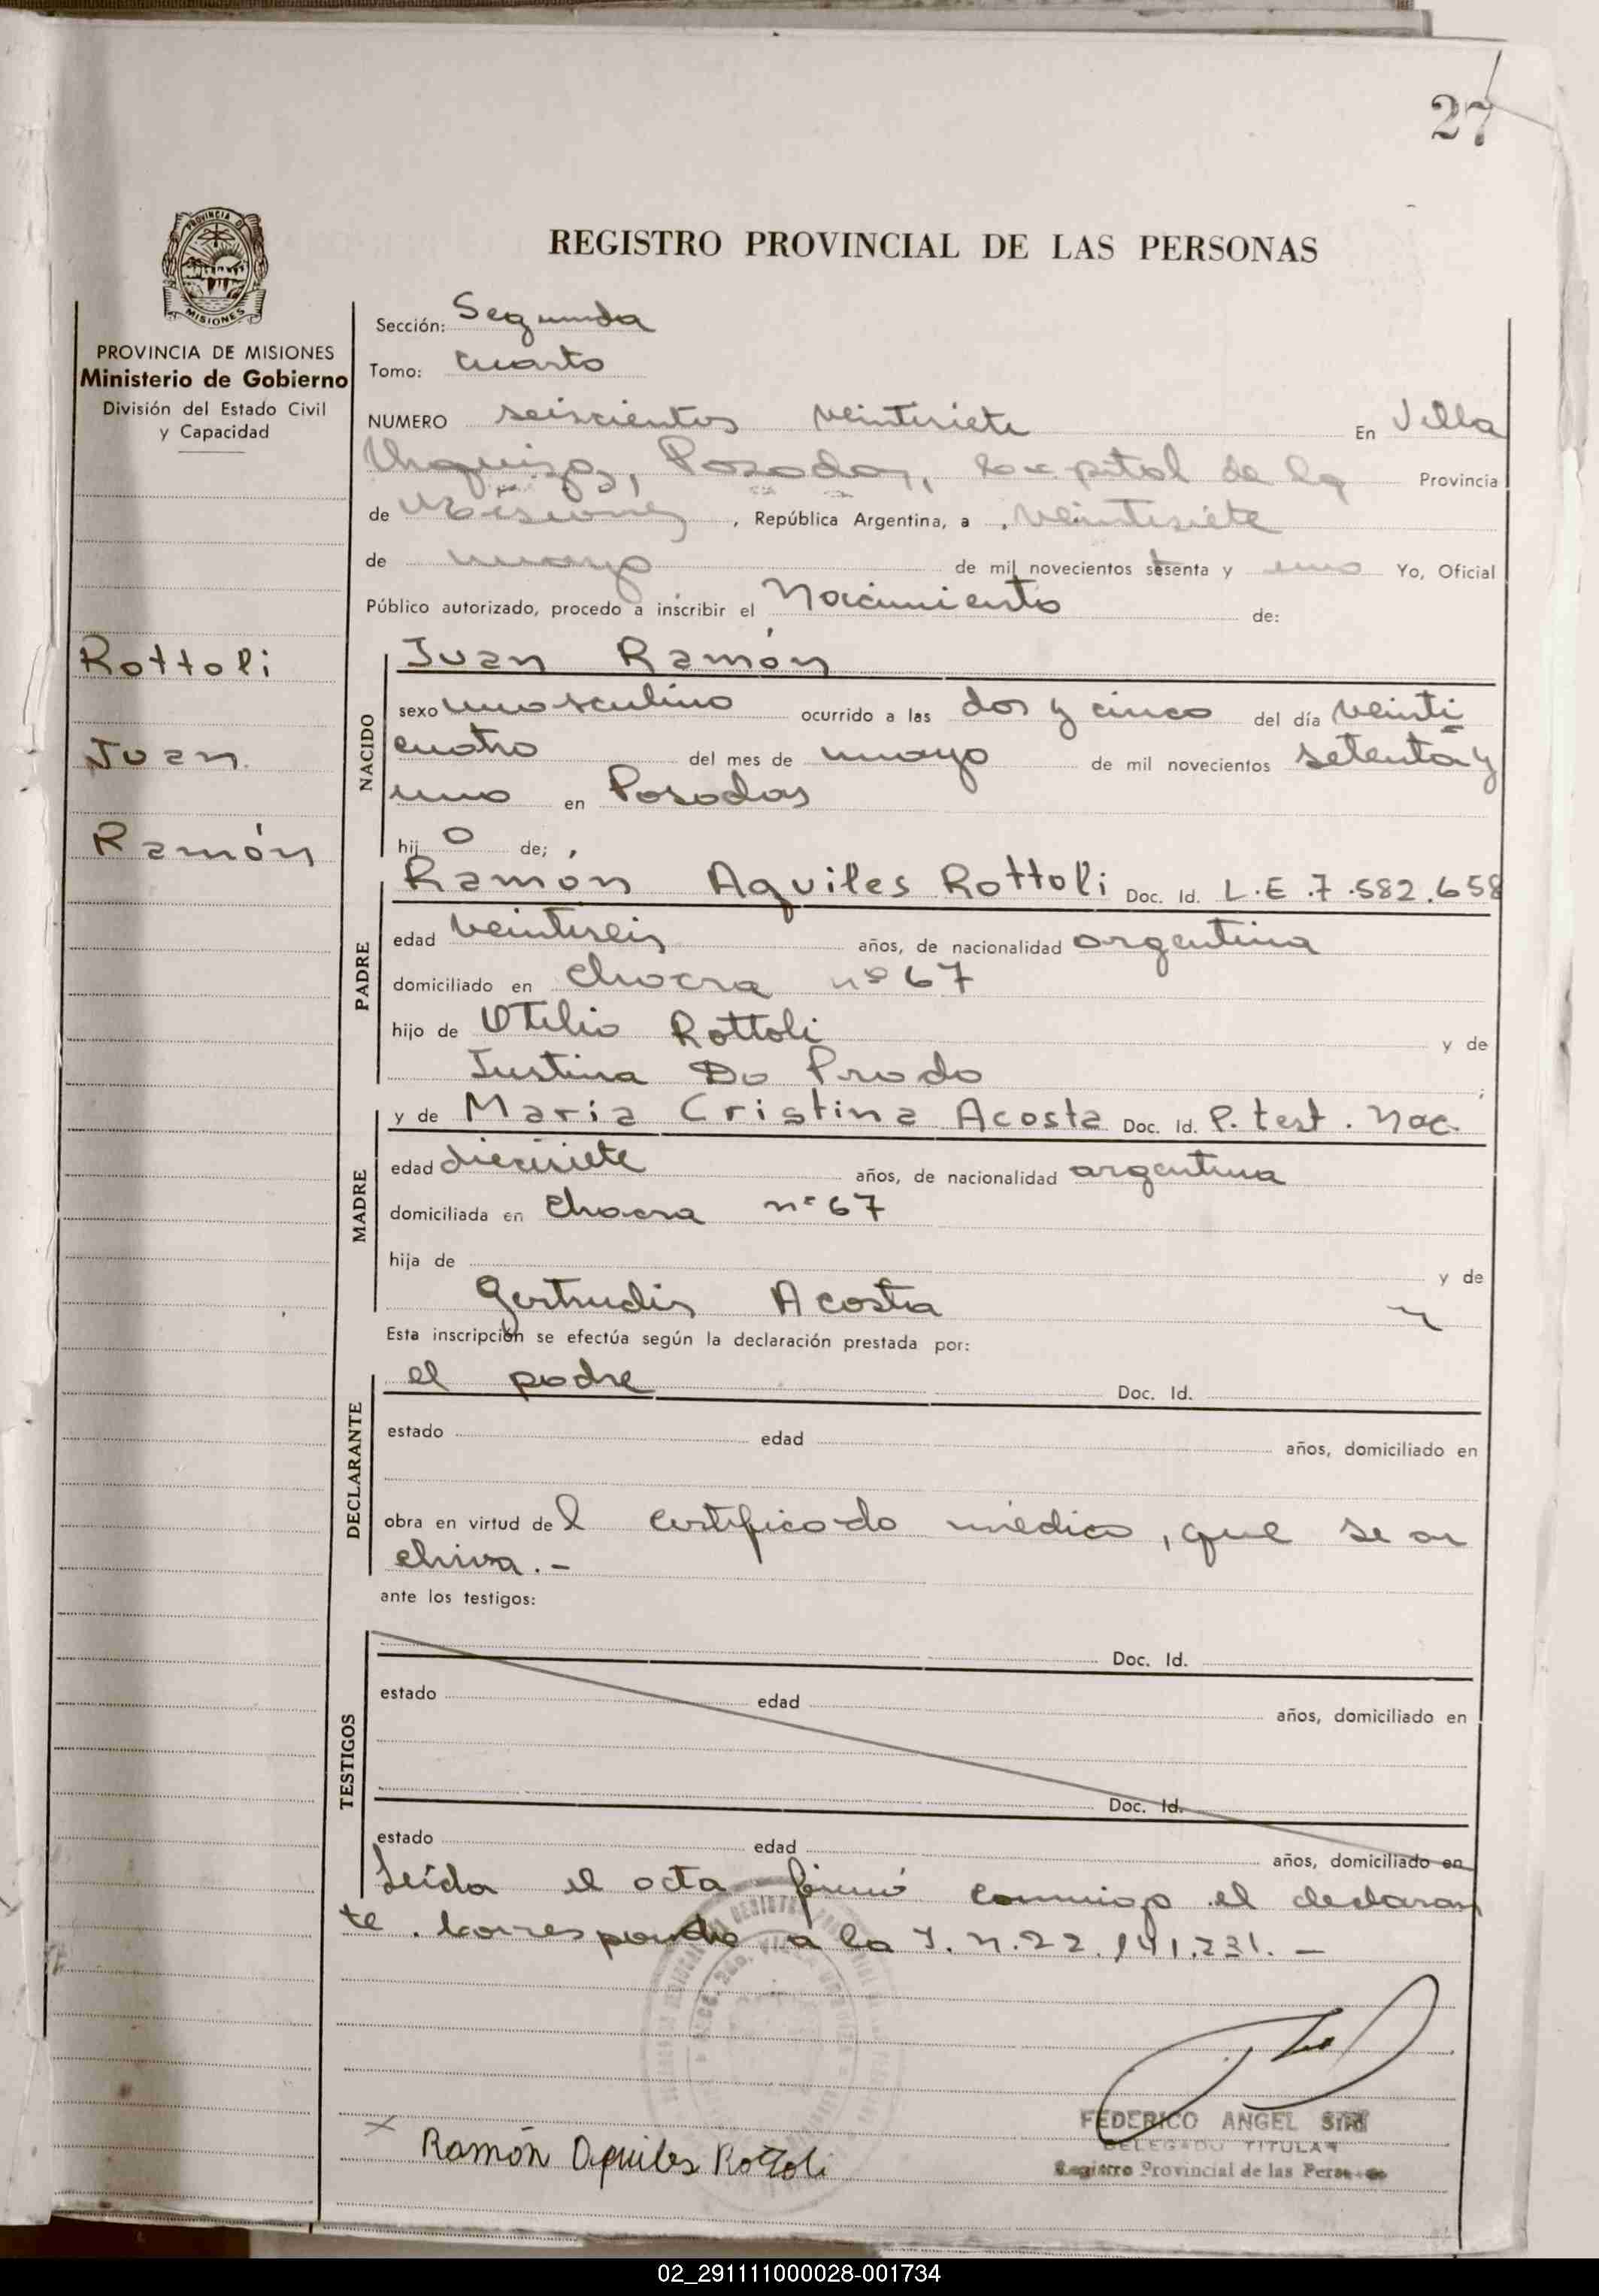 27
PROVINCIA DE
MISIONES
PROVINCIA DE MISIONES
Ministerio de Gobierno
División del Estado Civil
y Capacidad
Rottoli
Juan
Ramón
REGISTRO PROVINCIAL DE LAS PERSONAS
Sección: Segunda
Tomo: Cuarto
NUMERO seiscientos veintisiete En Villa
Urquiza, Posadas, Capital de la Provincia
de Misiones, República Argentina, a veintisiete
de mayo de mil novecientos setenta y uno Yo, Oficial
Público autorizado, procedo a inscribir el Nacimiento de:
NACIDO
Juan Ramón
sexo masculino ocurrido a las dos y cinco del día veinti
cuatro del mes de mayo de mil novecientos setenta y
uno en Posadas
hij o de;
PADRE
Ramón Aquiles Rottoli Doc. Id. L.E.7.582.658
edad veintiseis años, de nacionalidad argentina
domiciliado en chacra nº 67
hijo de Otilio Rottoli y de
Justina Do Prado ;
MADRE
y de María Cristina Acosta Doc. Id. P. test. Nac.
edad diecisiete años, de nacionalidad argentina
domiciliada en chacra nº 67
hija de y de
Gertrudis Acosta
Esta inscripción se efectúa según la declaración prestada por:
DECLARANTE
el padre Doc. Id.
estado edad años, domiciliado en
obra en virtud del certificado médico, que se ar
chiva.-
ante los testigos:
TESTIGOS
Doc. Id.
estado edad años, domiciliado en
Doc. Id.
estado edad años, domiciliado en
Leída el acta firmó conmigo el declaran
te. Corresponde a la I.N.22.141.231.-
Ramón Aquiles Rottoli
FEDERICO ANGEL
DELEGADO TITULAR
Registro Provincial de las Personas
02_291111000028-001734